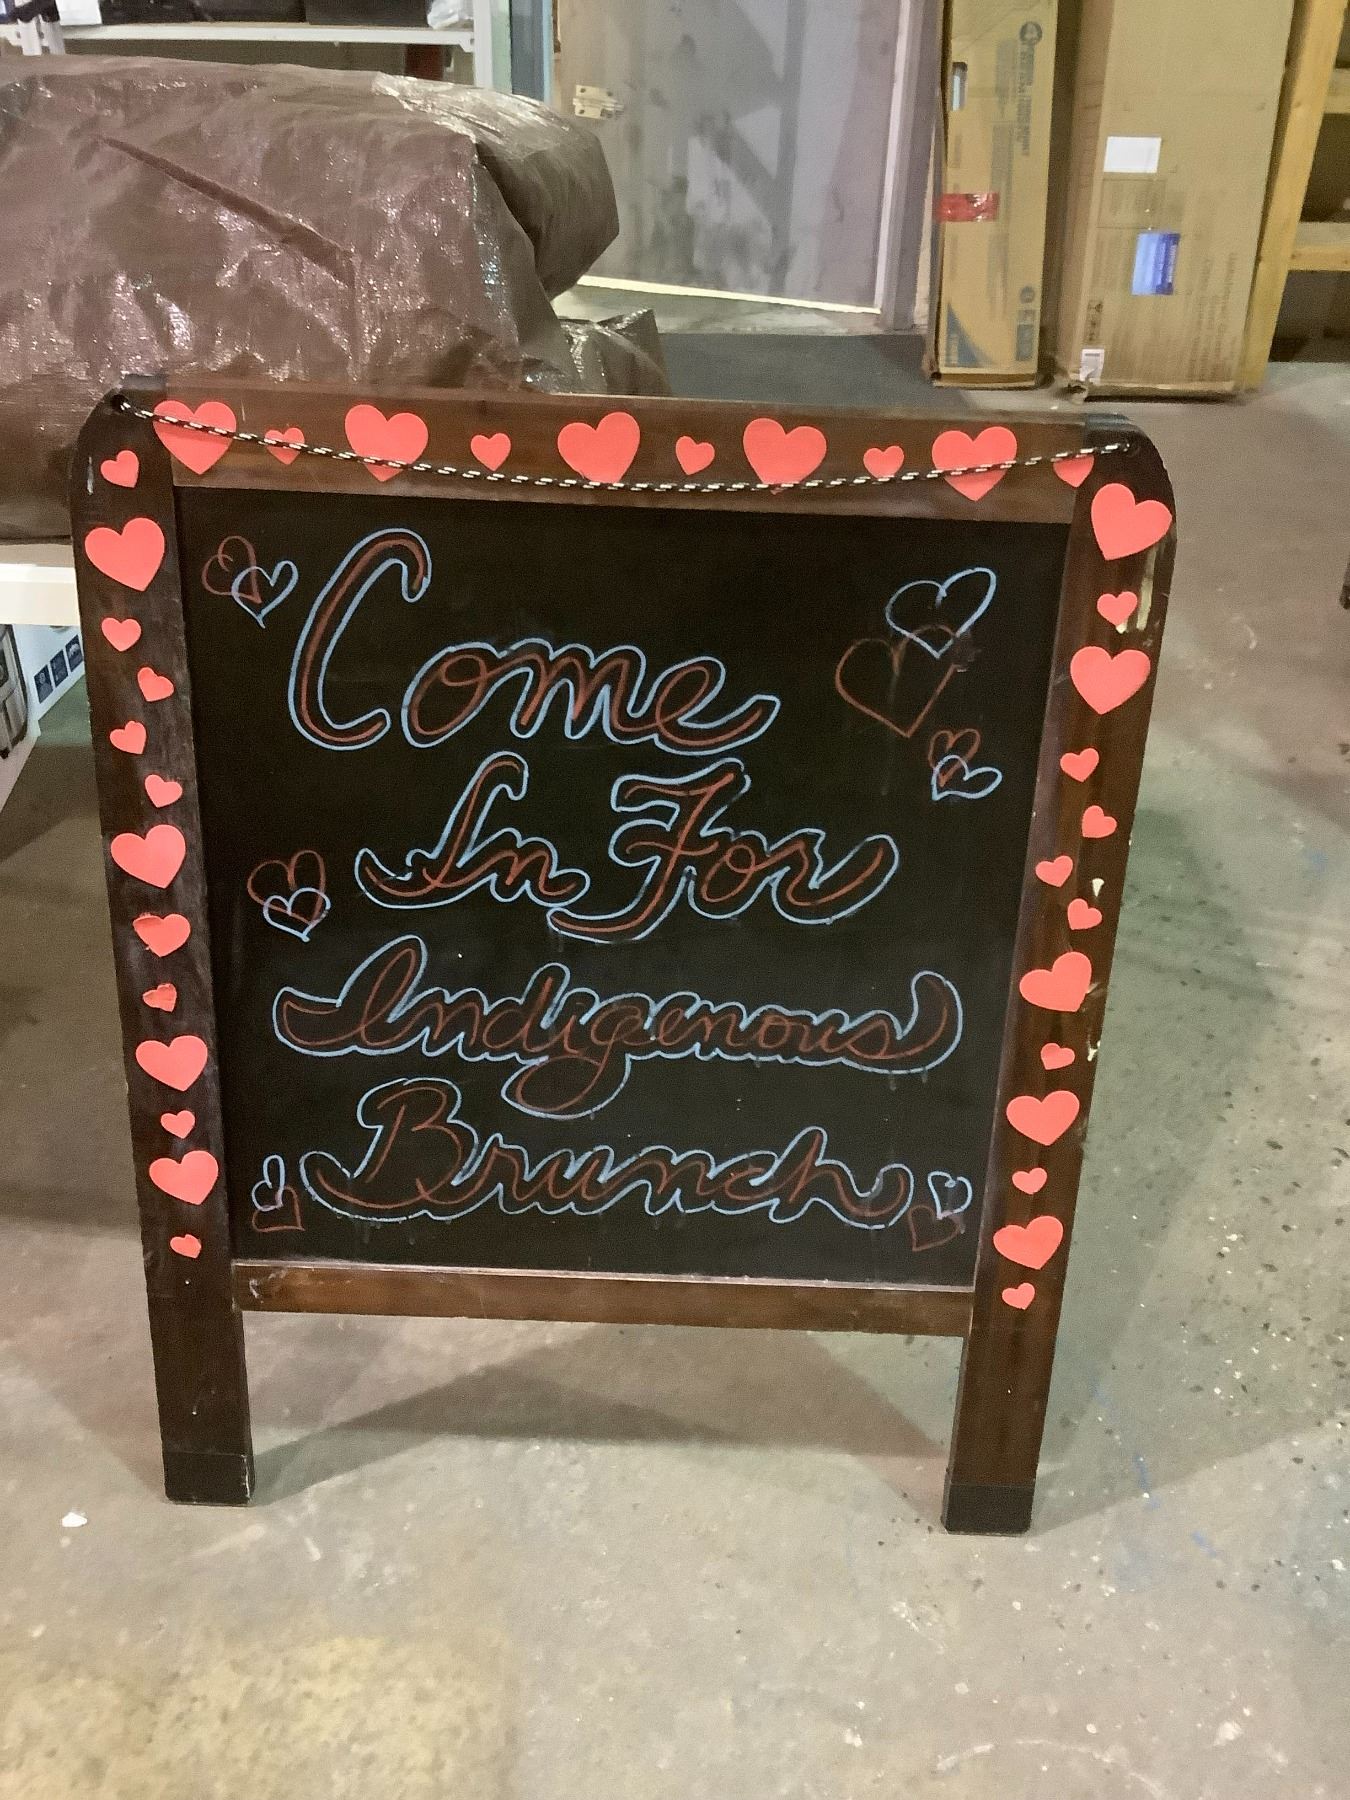 Come
In For
Indigenous
Brunch